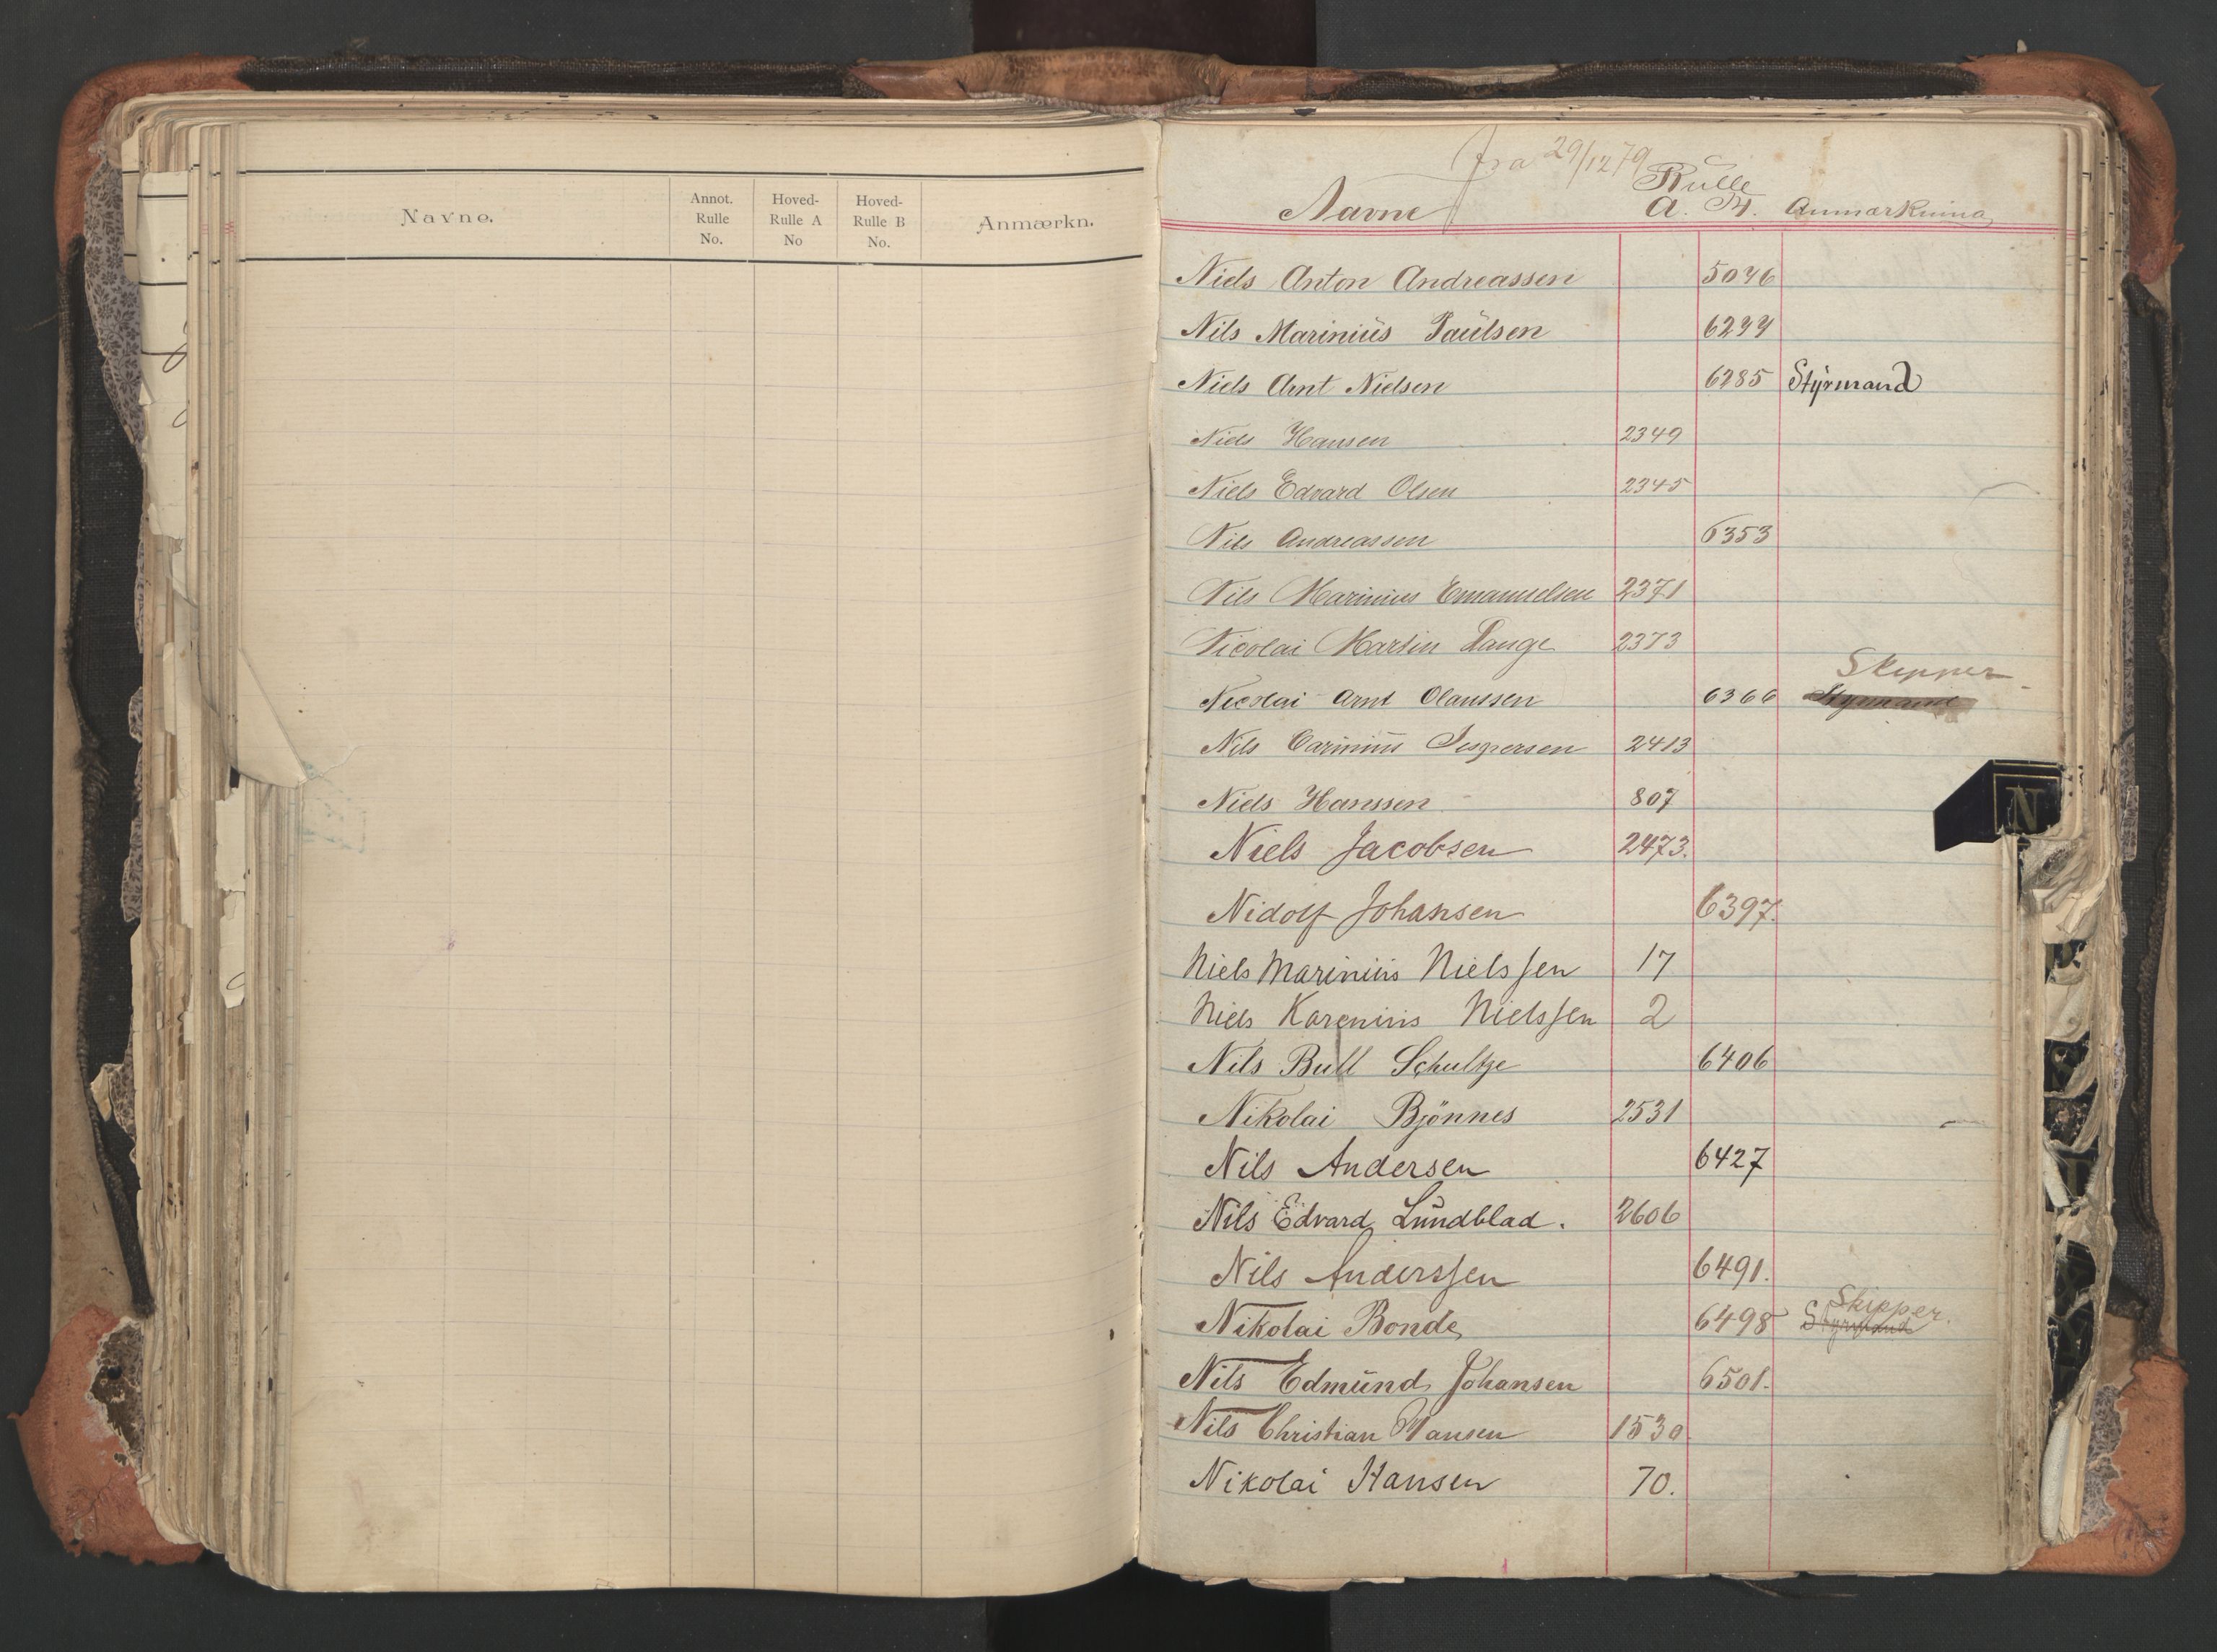 Navne.
Annot. Rulle No.
Hoved-Rulle A No
Hoved-Rulle B No.
Anmærkn.
fra 29/12 79
Rulle
Navne A. B. Anmærkning
Niels Anton Andreassen 5046
Nils Marinius Paulsen 6244
Niels Arnt Nielsen 6285 Styrmand
Niels Hansen 2349
Niels Edvard Olsen 2345
Nils Andreassen 6353
Nils Marinius Emanuelsen 2371
Nicolai Martin Lange 2373
Skipper
Nicolai Arnt Olaussen 6366 Styrmand
Nils Carinius Jespersen 2413
Niels Hanssen 807
Niels Jacobsen 2473.
Nidolf Johansen 6397.
Niels Marinius Nielssen 17
Niels Karenius Nielssen 2
Nils Bull Schultze 6406
Nikolai Bjönnes 2531
Nils Andersen 6427
Nils Edvard Lundblad. 2606
Nils Anderssen 6491.
Skipper.
Nikolai Bonde 6498 Styrmand
Nils Edmund Johansen 6501.
Nils Christian Hansen 1530
Nikolai Hansen 70.
N